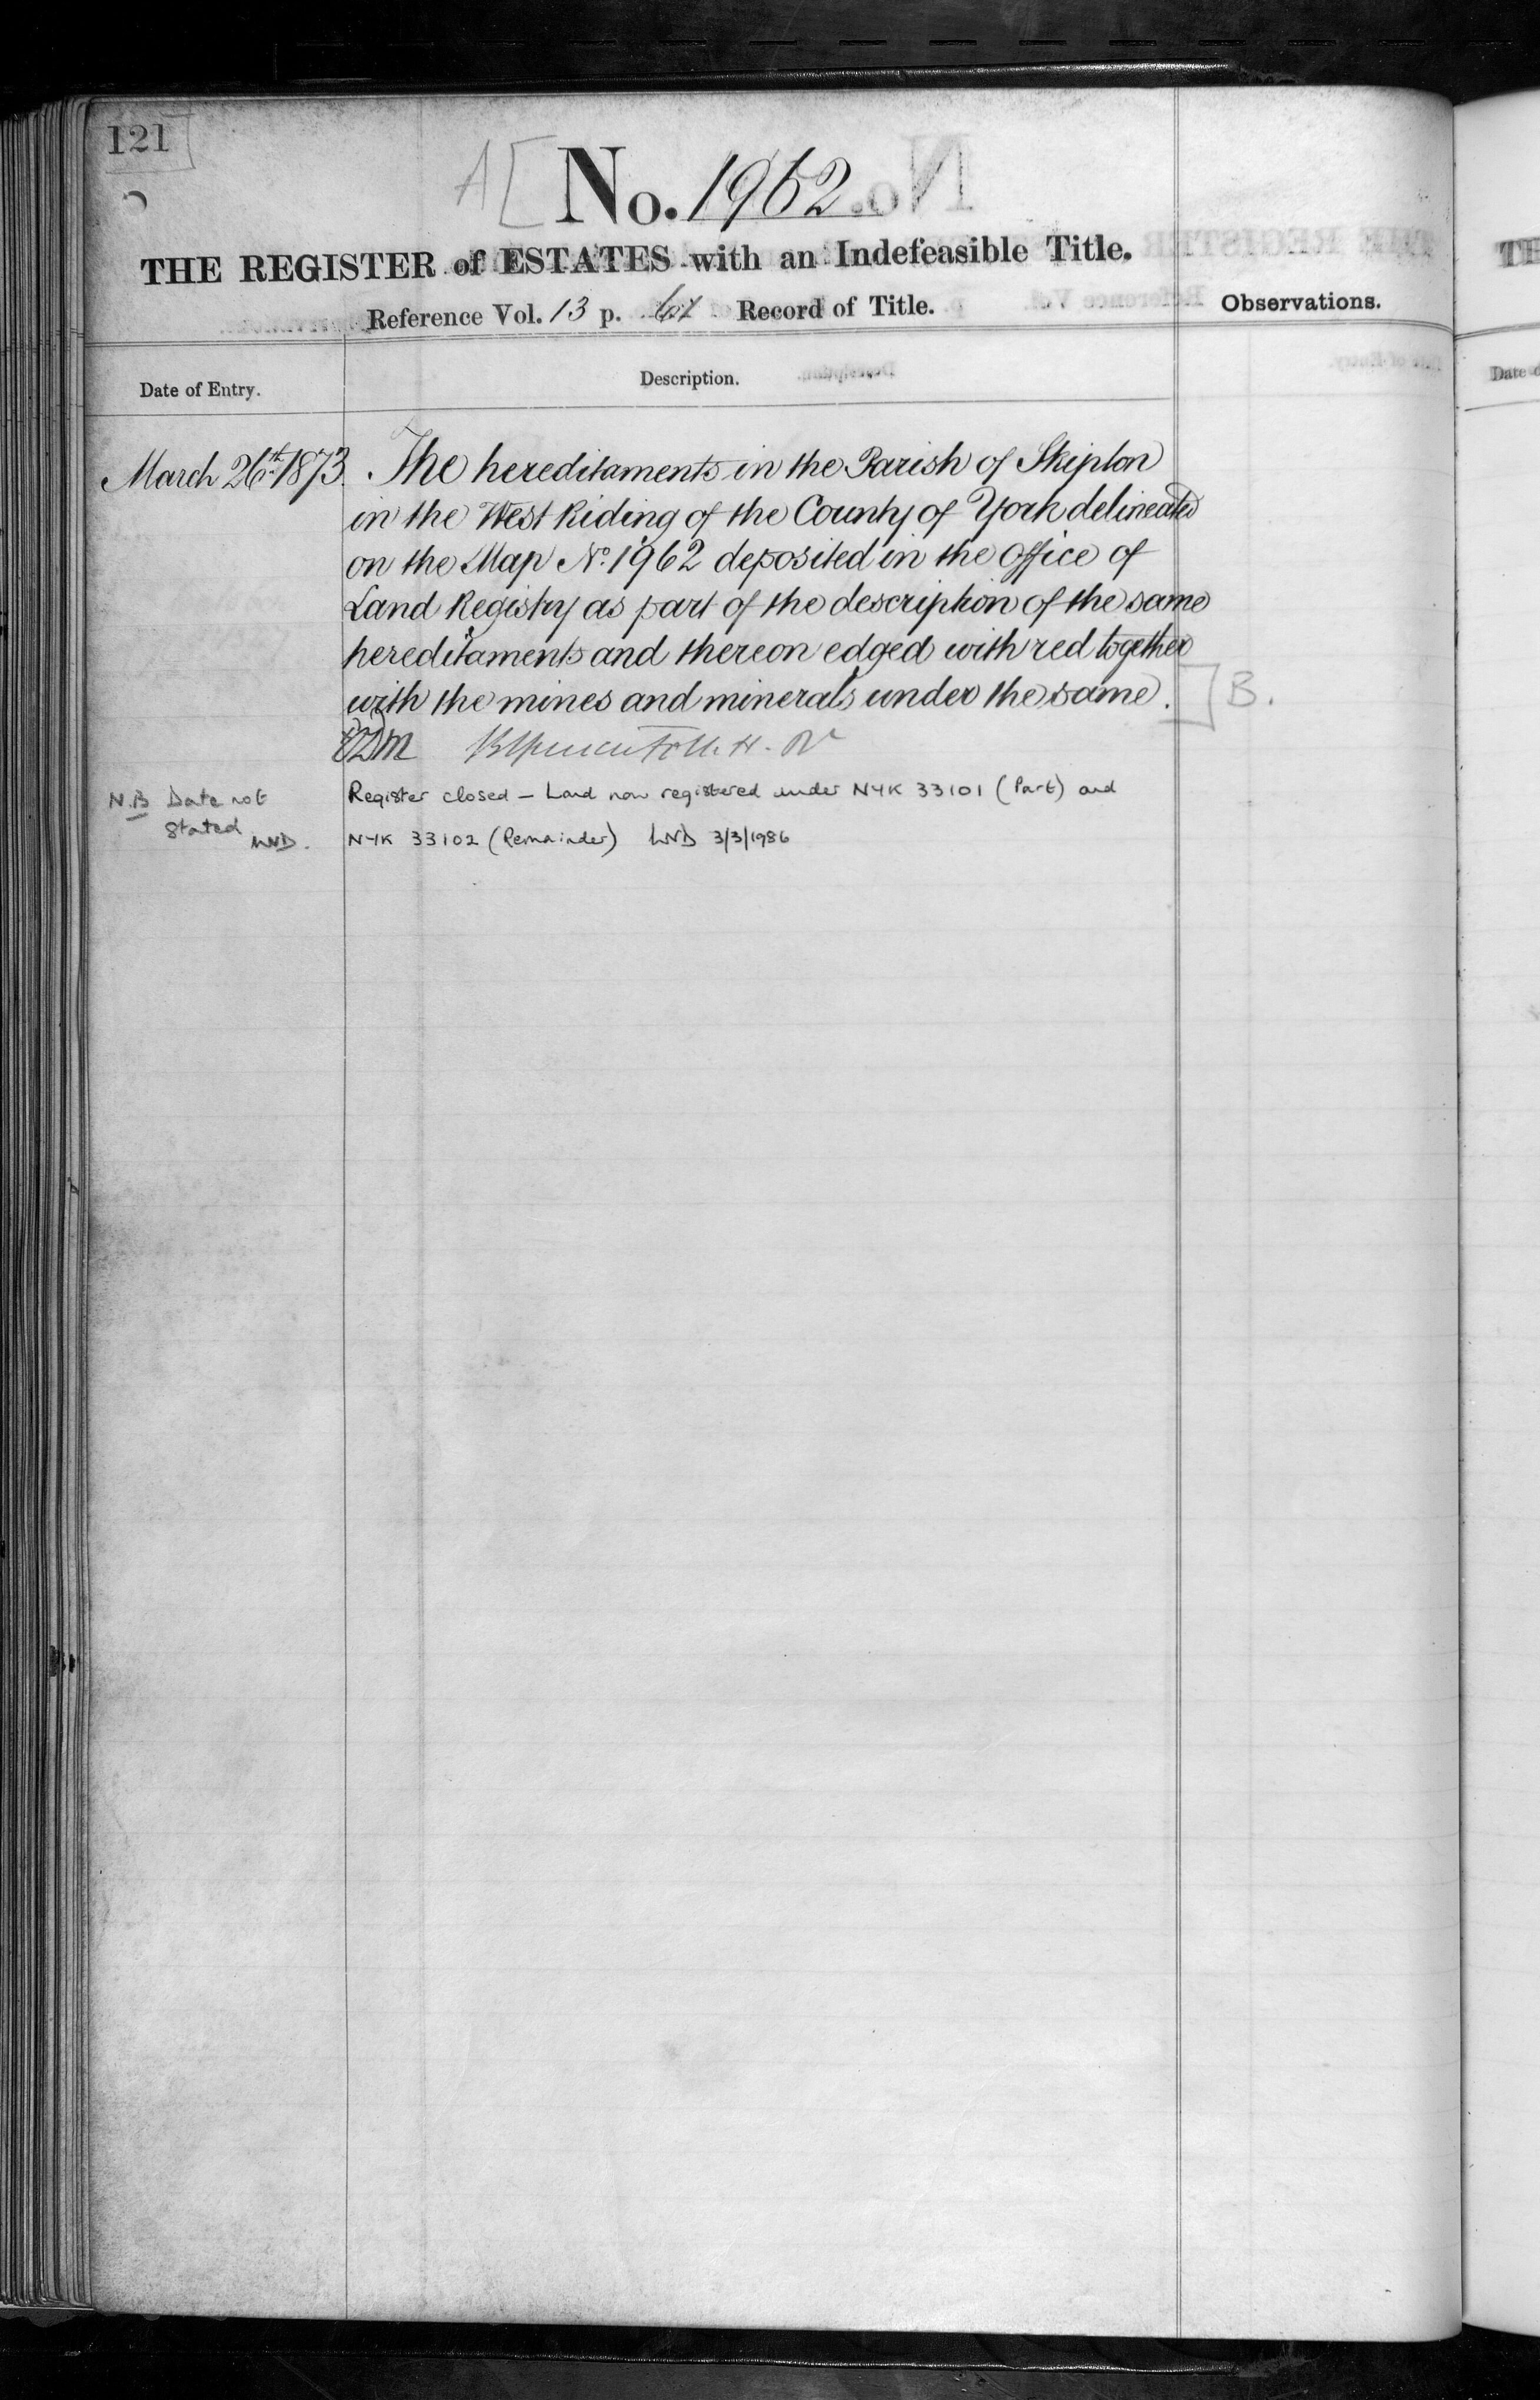 121
A[ No. 1962.
THE REGISTER of ESTATES with an Indefeasible Title.
Reference Vol. 13 p. 61 Record of Title.
Observations.
Date of Entry.
Description.
March 26th 1873. The hereditaments in the Parish of Skipton
in the West Riding of the County of York delineated
on the Map No. 1962 deposited in the Office of
Land Registry as part of the description of the same
hereditaments and thereon edged with red together
with the mines and minerals under the same. ]B.
N.B Date not
stated
Register closed - Land now registered under NYK 33101 (Part) and
NYK 33102 (Remainder) LND 3/3/1986
TH
Date